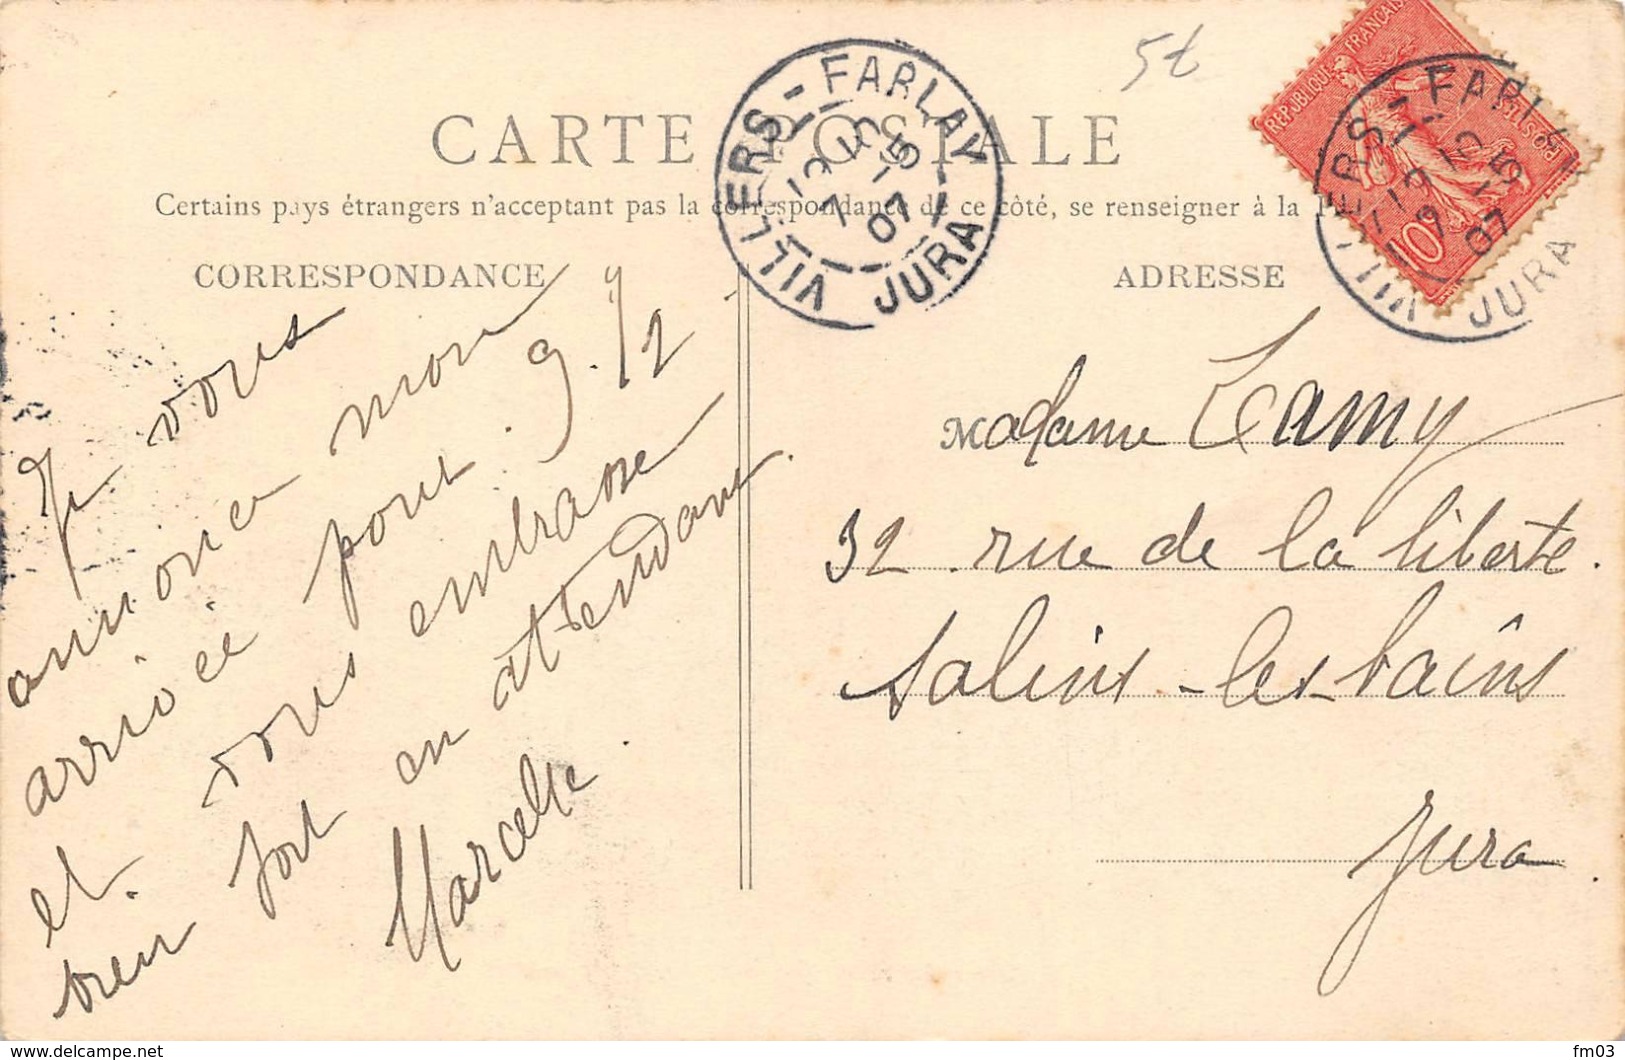 5t
CARTE POSTALE
Certains pays étrangers n'acceptent pas la correspondance de ce côté, se renseigner à la
CORRESPONDANCE
ADRESSE
VILLERS-FARLAY
JURA
13 15
7 07
RÉPUBLIQUE FRANÇAISE
POSTES
10
FARLAY
JURA
Je vous
annonce mon
arrivée pour 9.h/2
et vous embrasse
bien fort en attendant.
Marcelle.
Madame Lamy
32 rue de la liberte.
Salins-les-bains
Jura.
fm03